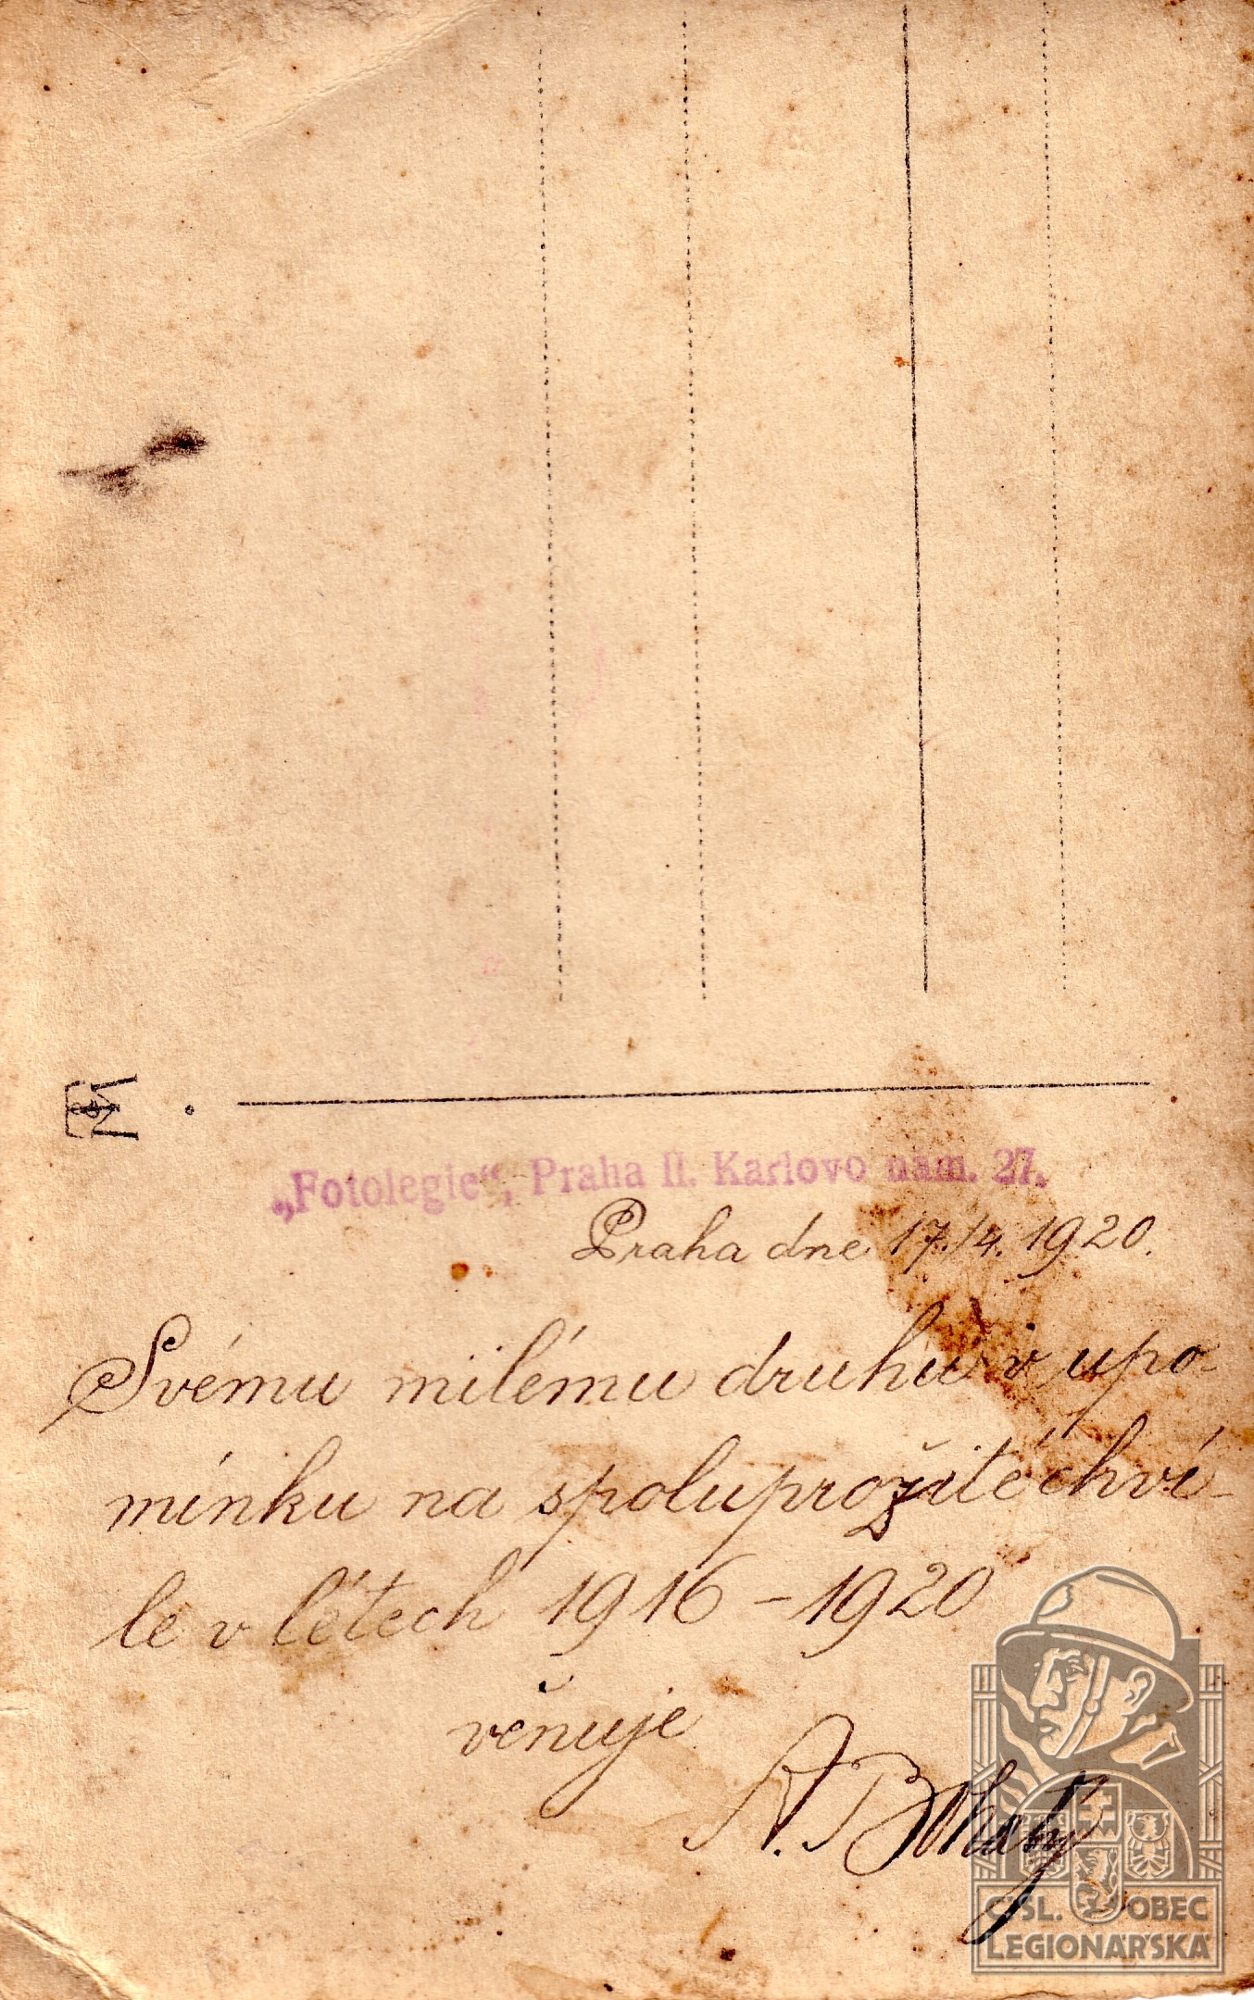 „Fotolegie“, Praha II. Karlovo nám. 27.
Praha dne 17./4. 1920.
Svému milému druhu v upo-
mínku na spoluprožité chví-
le v létech 1916 – 1920
věnuje
A.
ČSL. OBEC
LEGIONÁŘSKÁ